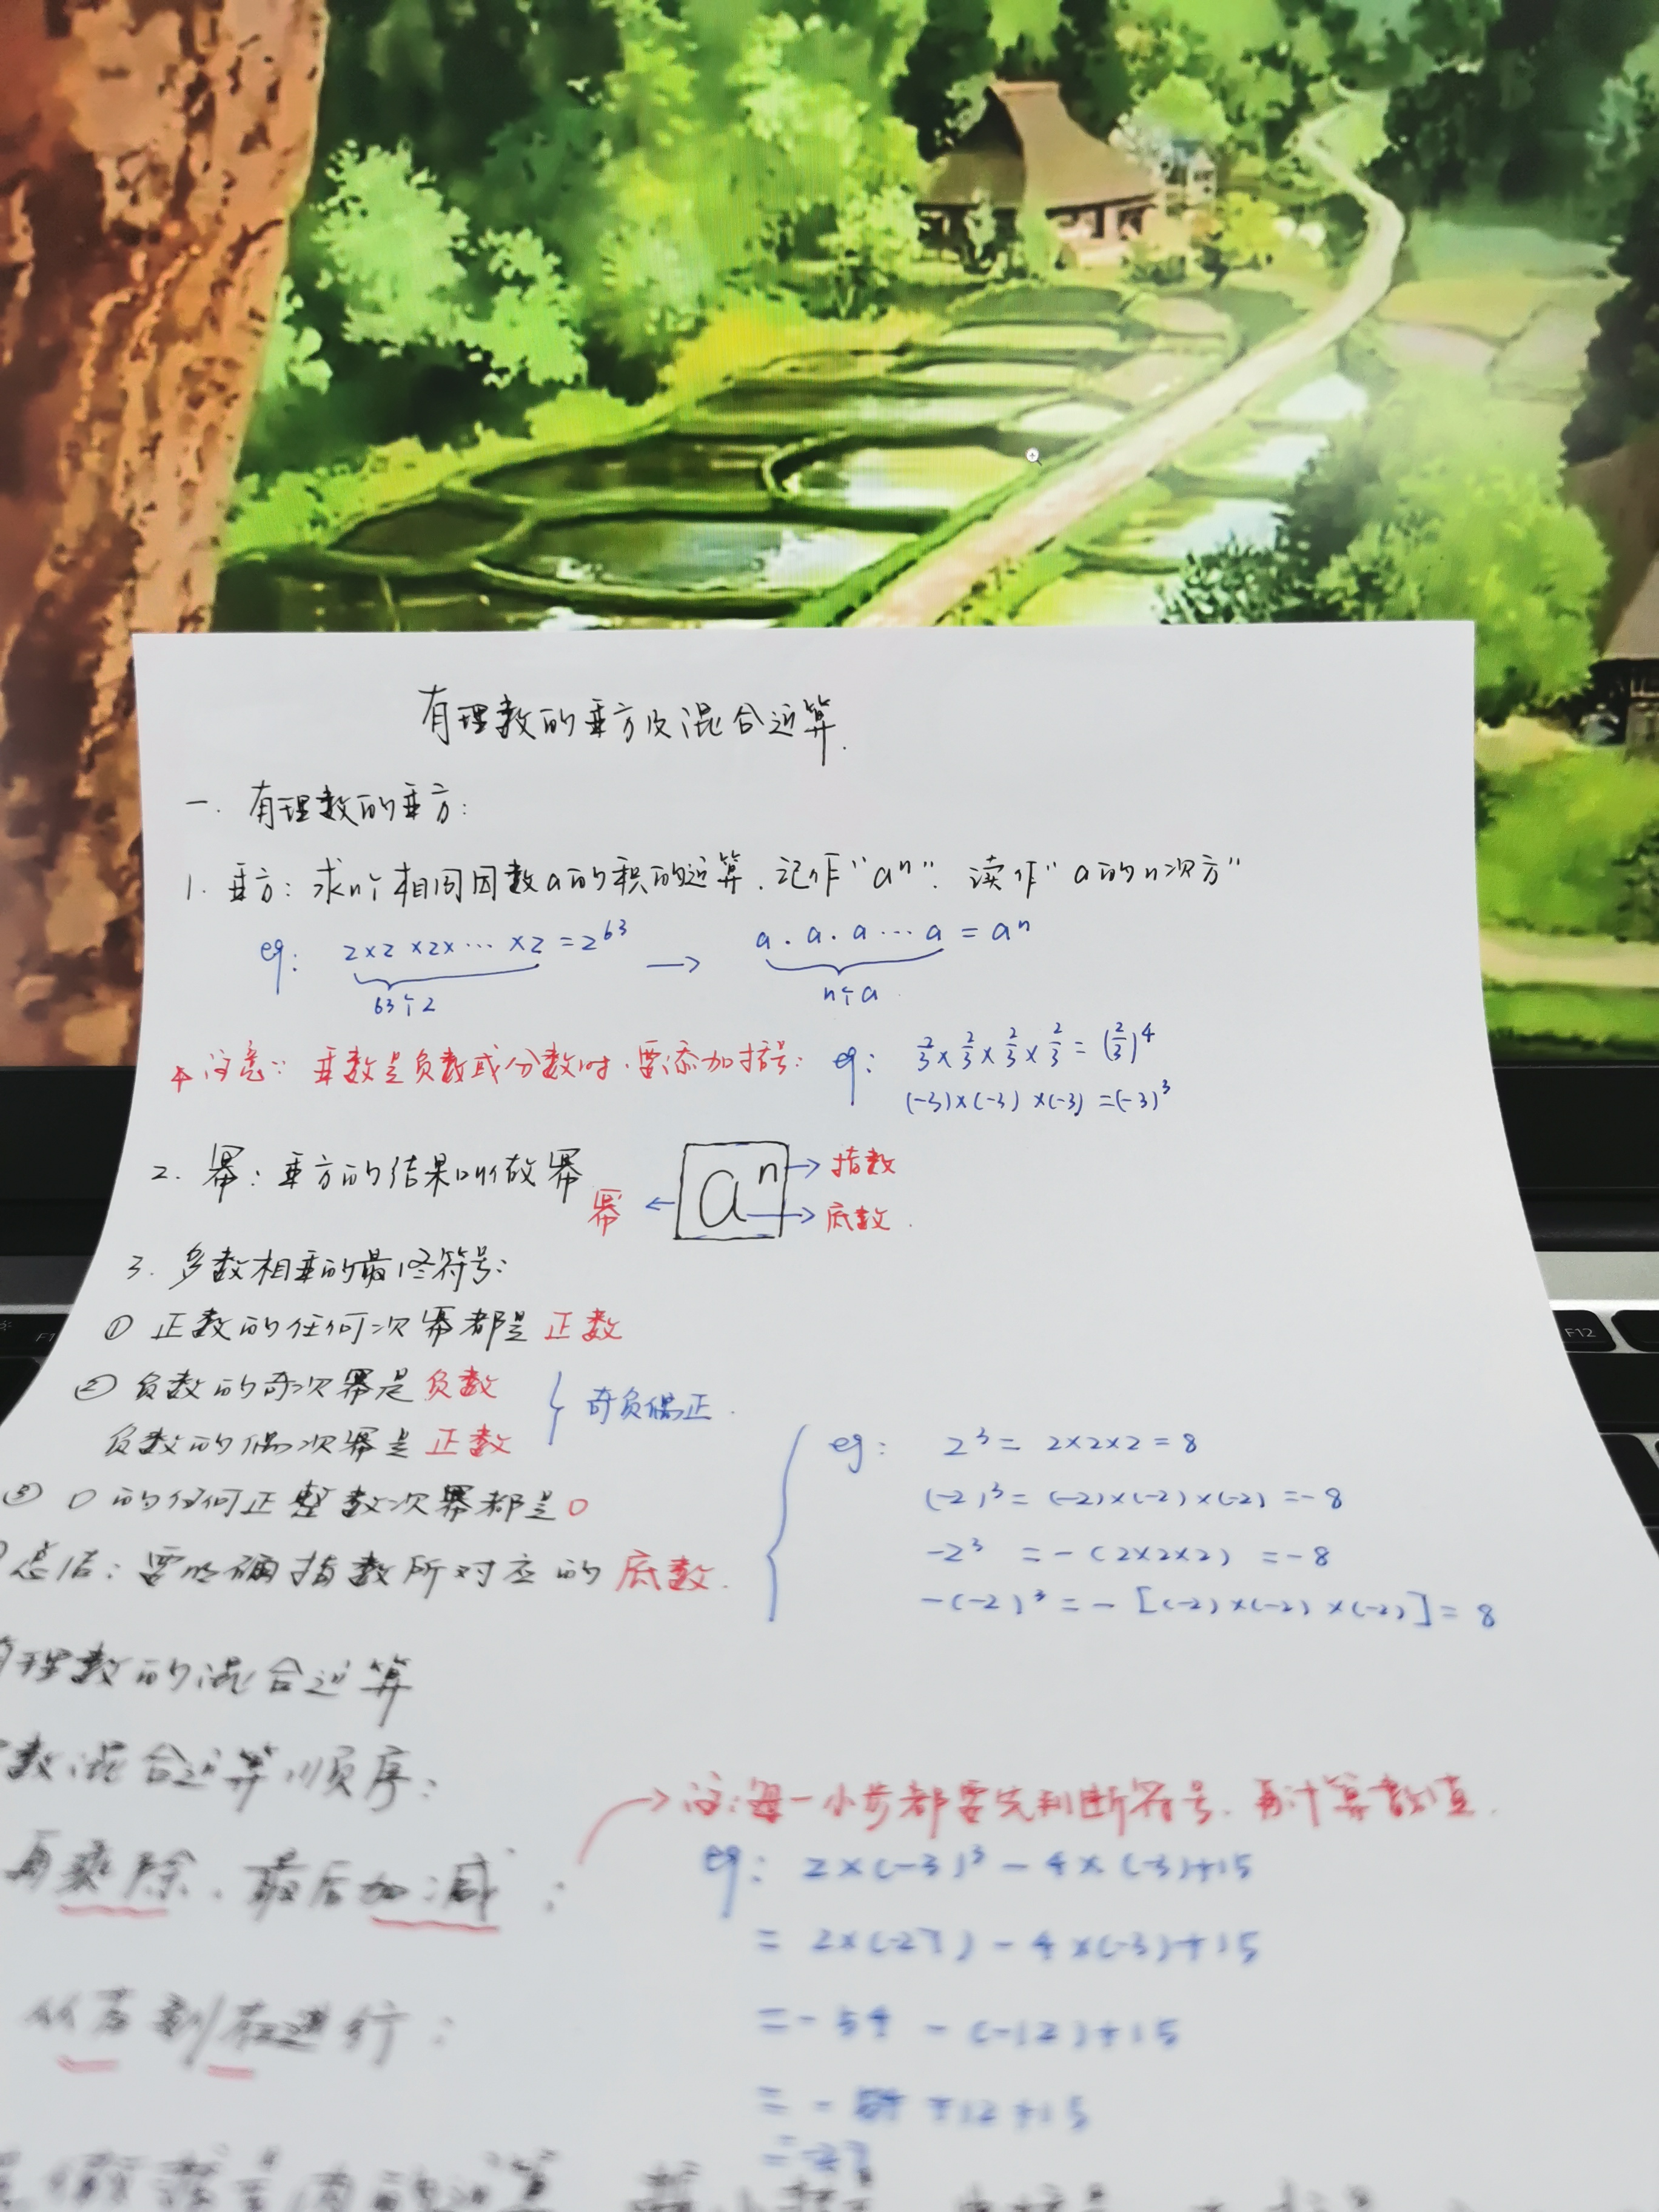 有理数的乘方及混合运算.
一. 有理数的乘方:
1. 乘方: 求n个相同因数a的积的运算. 记作“aⁿ”. 读作“a的n次方”
eg: 2×2×2×⋯×2=2⁶³ → a·a·a⋯a=aⁿ
63个2 n个a
注意: 乘数是负数或分数时, 要添加括号: eg: 2/3×2/3×2/3×2/3=(2/3)⁴
(-3)×(-3)×(-3)=(-3)³
2. 幂: 乘方的结果叫做幂
幂 ← aⁿ → 指数
→ 底数.
3. 多数相乘的最终符号:
① 正数的任何次幂都是正数
② 负数的奇次幂是负数
负数的偶次幂是正数
奇负偶正.
③ 0的任何正整数次幂都是0
总结: 要明确指数所对应的底数.
eg: 2³=2×2×2=8
(-2)³=(-2)×(-2)×(-2)=-8
-2³=-(2×2×2)=-8
-(-2)³=-[(-2)×(-2)×(-2)]=8
有理数的混合运算
数混合运算顺序:
再乘除. 最后加减;
→ 注: 每一小步都要先判断符号. 再计算数值.
eg: 2×(-3)³-4×(-3)+15
=2×(-27)-4×(-3)+15
=-54-(-12)+15
=-54+12+15
=-27
从左到右进行: